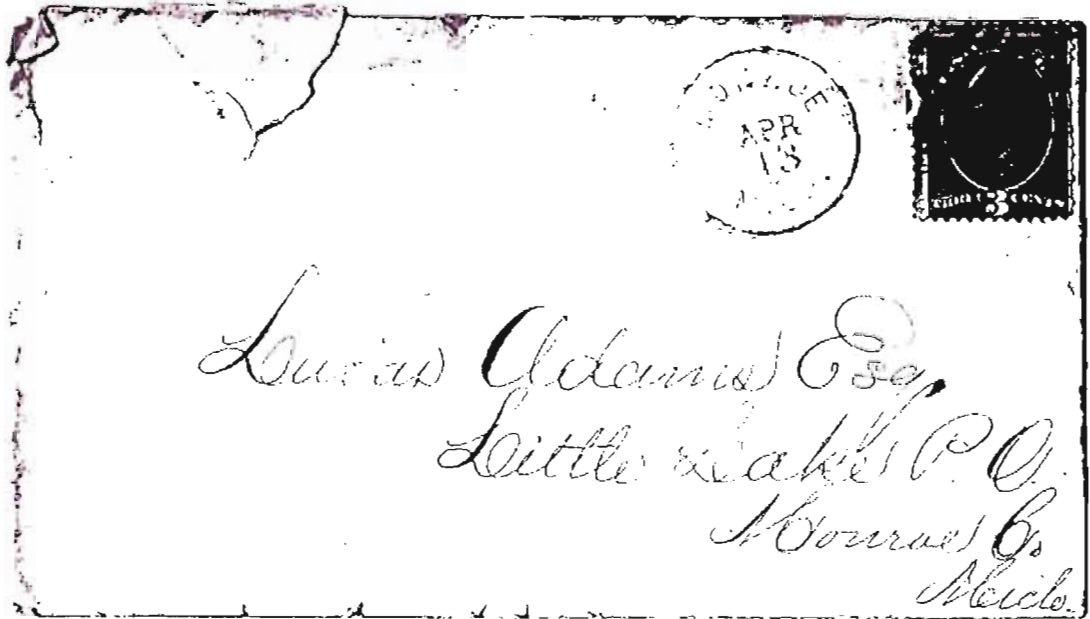 MONROE
APR
13
THREE 3 CENTS
Lucias Adams Esq.
Little Lake P.O.
Monroe Co.
Mich.